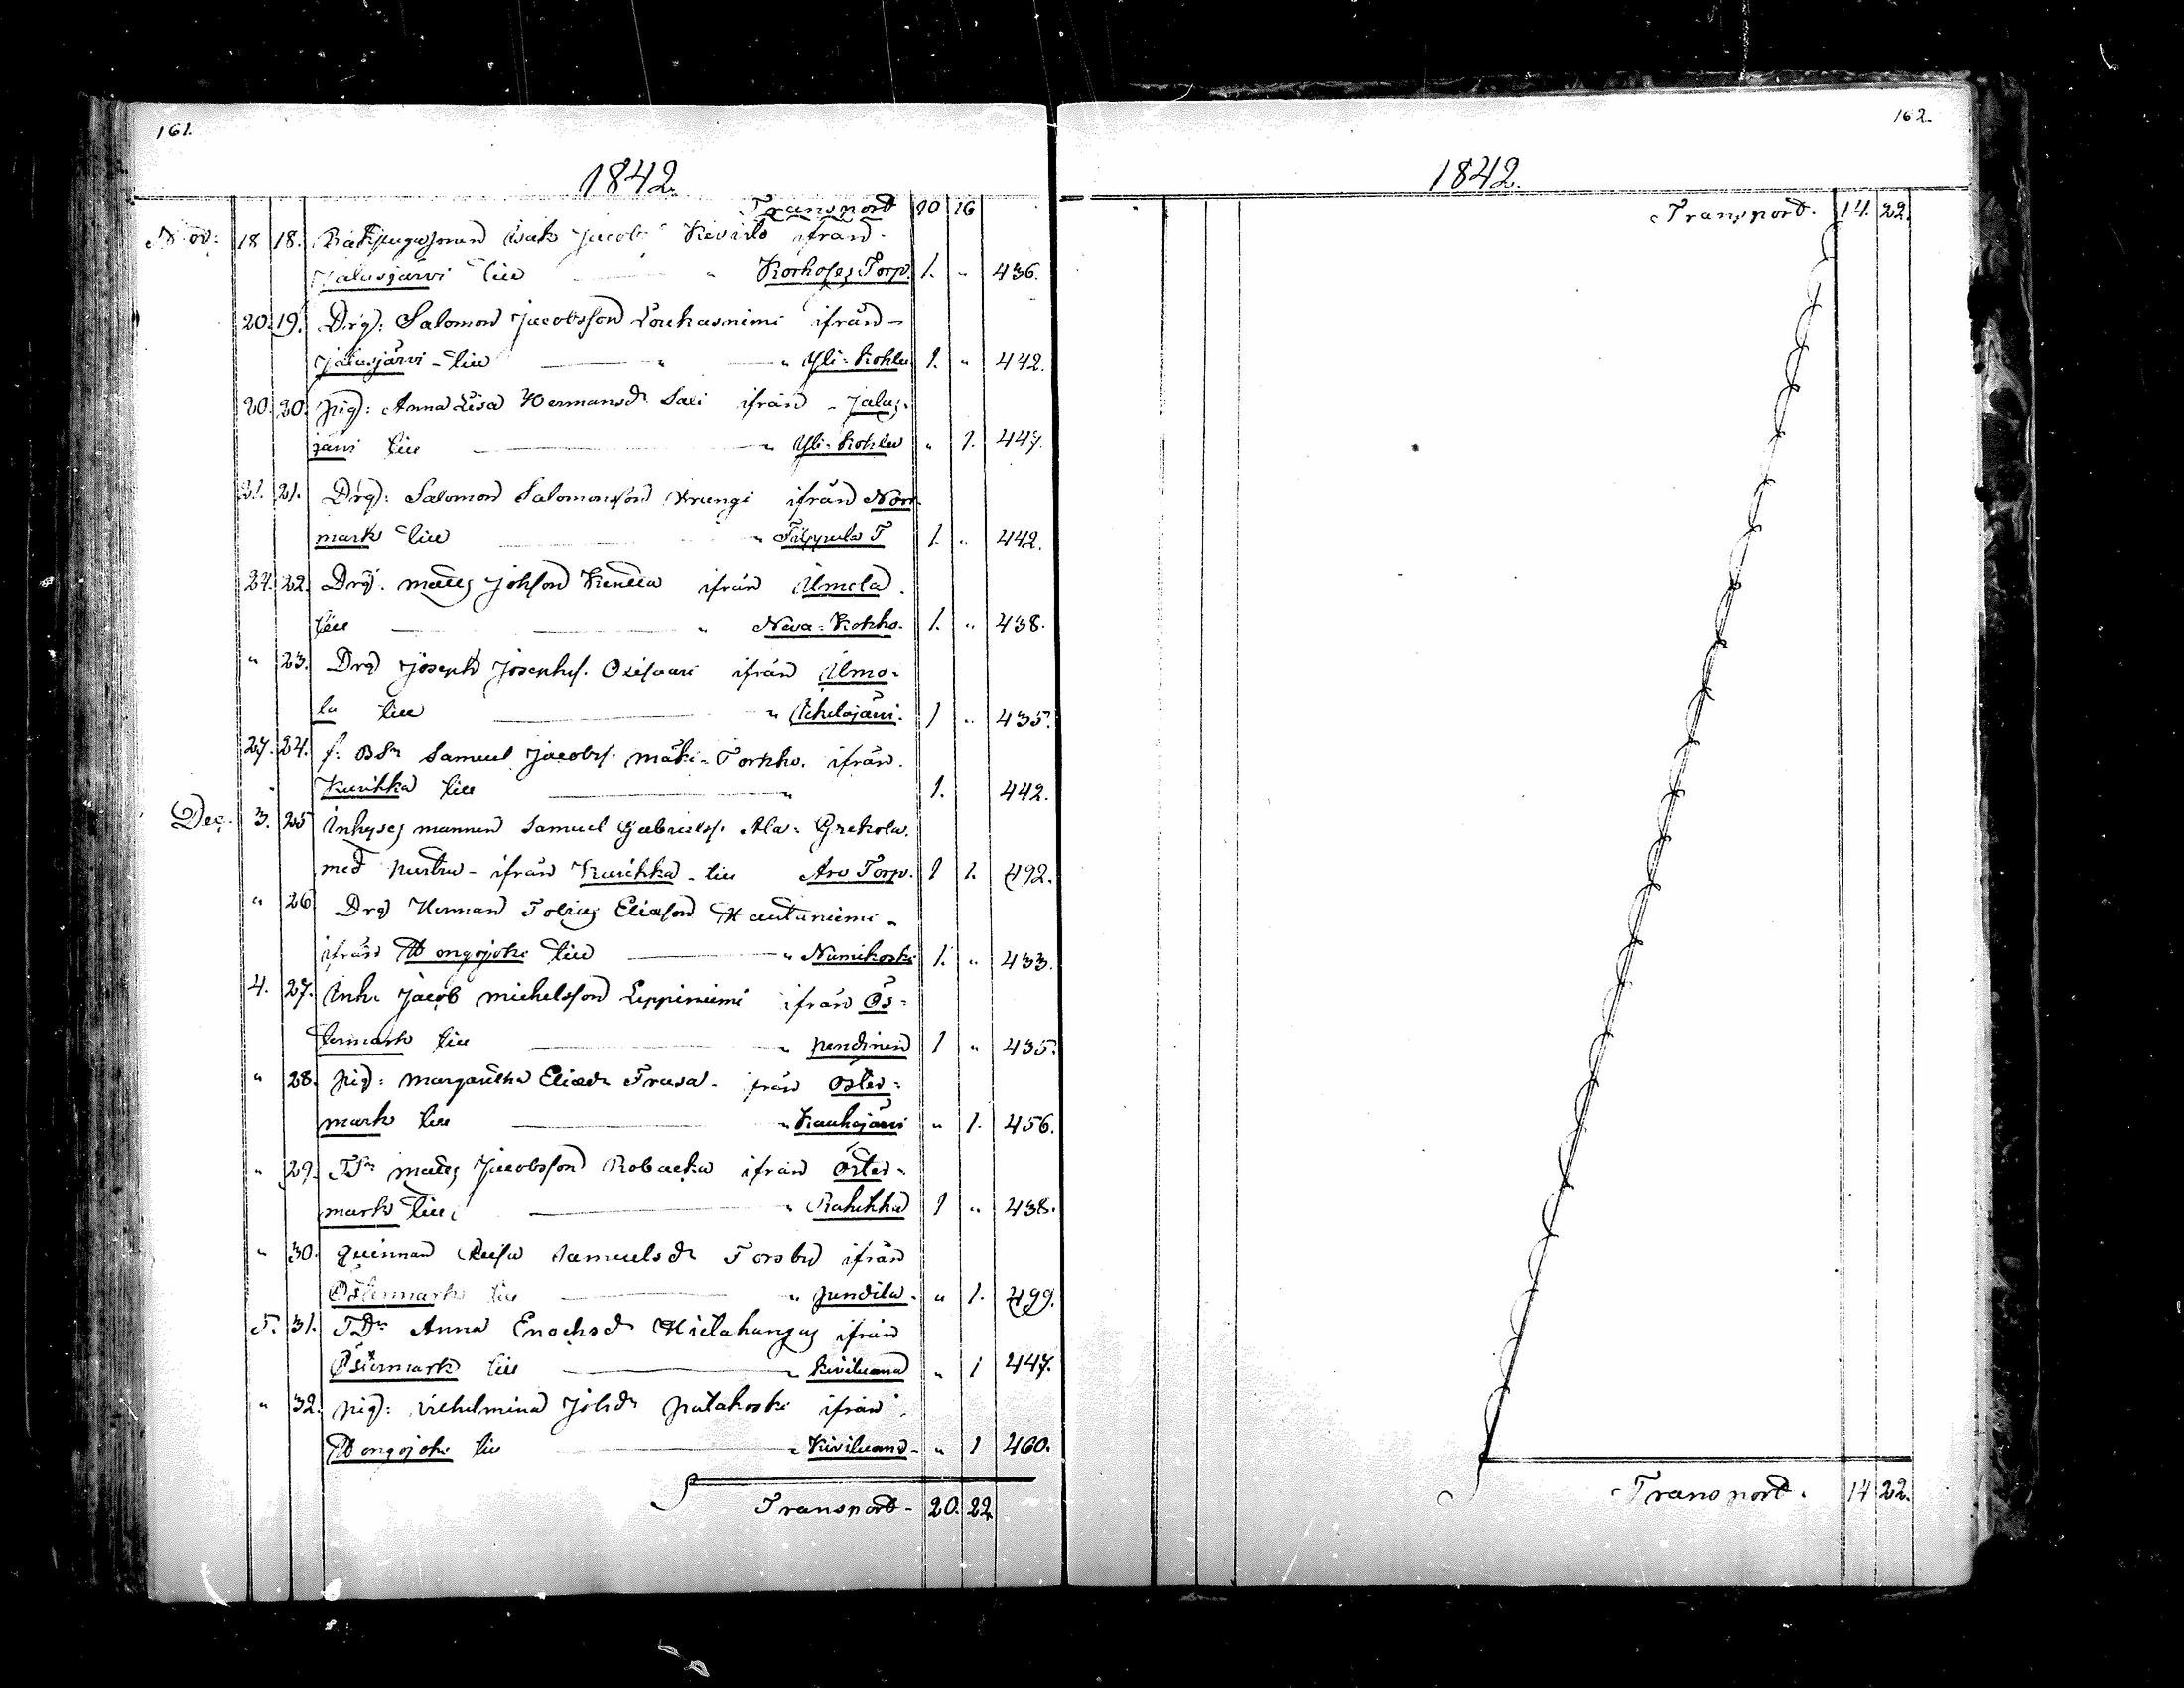 161.
1842.
Transport 10 16
Nov: 18 18. Isak Jacobs ifrån
Jalasjärvi till " Korhoses Torp. 1. " 436.
20. 19. Drg: Salomon Jacobsson Loukasnimi ifrån -
Jalasjärvi - till " " Yli-Kohlu 1. " 442.
20. 20. pig: Anna Lisa Hermansdr Sali ifrån - Jalas-
järvi till " Yli-Kohlu " 1. 447.
21. 21. Drg: Salomon Salomonsson Krungi ifrån Norr
mark till " Filppula T 1. " 442.
27. 22. Drg: Matts Johsson ifrån Ilmola
till " Neva-Kokko. 1. " 438.
" 23. Drg Joseph Josephs. ifrån Ilmo-
la till " 1 " 435.
27. 24. f: Bdn Samuel Jacobs. Mäki-Torkko. ifrån.
Kurikka till " 1. 442.
Dec. 3. 25 Inhyses mannen Samuel Gabriels. Ala-Grekola.
med hustru - ifrån Kurikka - till Aro Torp. 1 1. 492.
" 26 Drg Herman Tobias Eliasson Hautaniemi -
ifrån Wongojoki till " Nimikoski 1. " 433.
4. 27. Inh. Jacob Michelsson Leppiniemi ifrån Ös-
termark till " pendinen 1 " 435.
" 28. pig: Margaretha Eliasdr Trusa - ifrån Öster-
mark till " Kauhajärvi " 1. 456.
" 29. Matts Jacobsson Robacka ifrån Öster-
mark till " Rahikka 1 " 438.
" 30. quinnan Samuelsdr Forsby ifrån
Östermark till " pendila. " 1. 499.
5. 31. TDr Anna Enochsdr Hietakangas ifrån
Östermark till " Kiviluoma " 1 447.
" 32. pig: Vilhelmina Johdr Putakoski ifrån
Wongojoki till " Kiviluoma - " 1 460.
Transport - 20. 22.
162.
1842.
Transport. 14. 22.
Transport. 14 22.